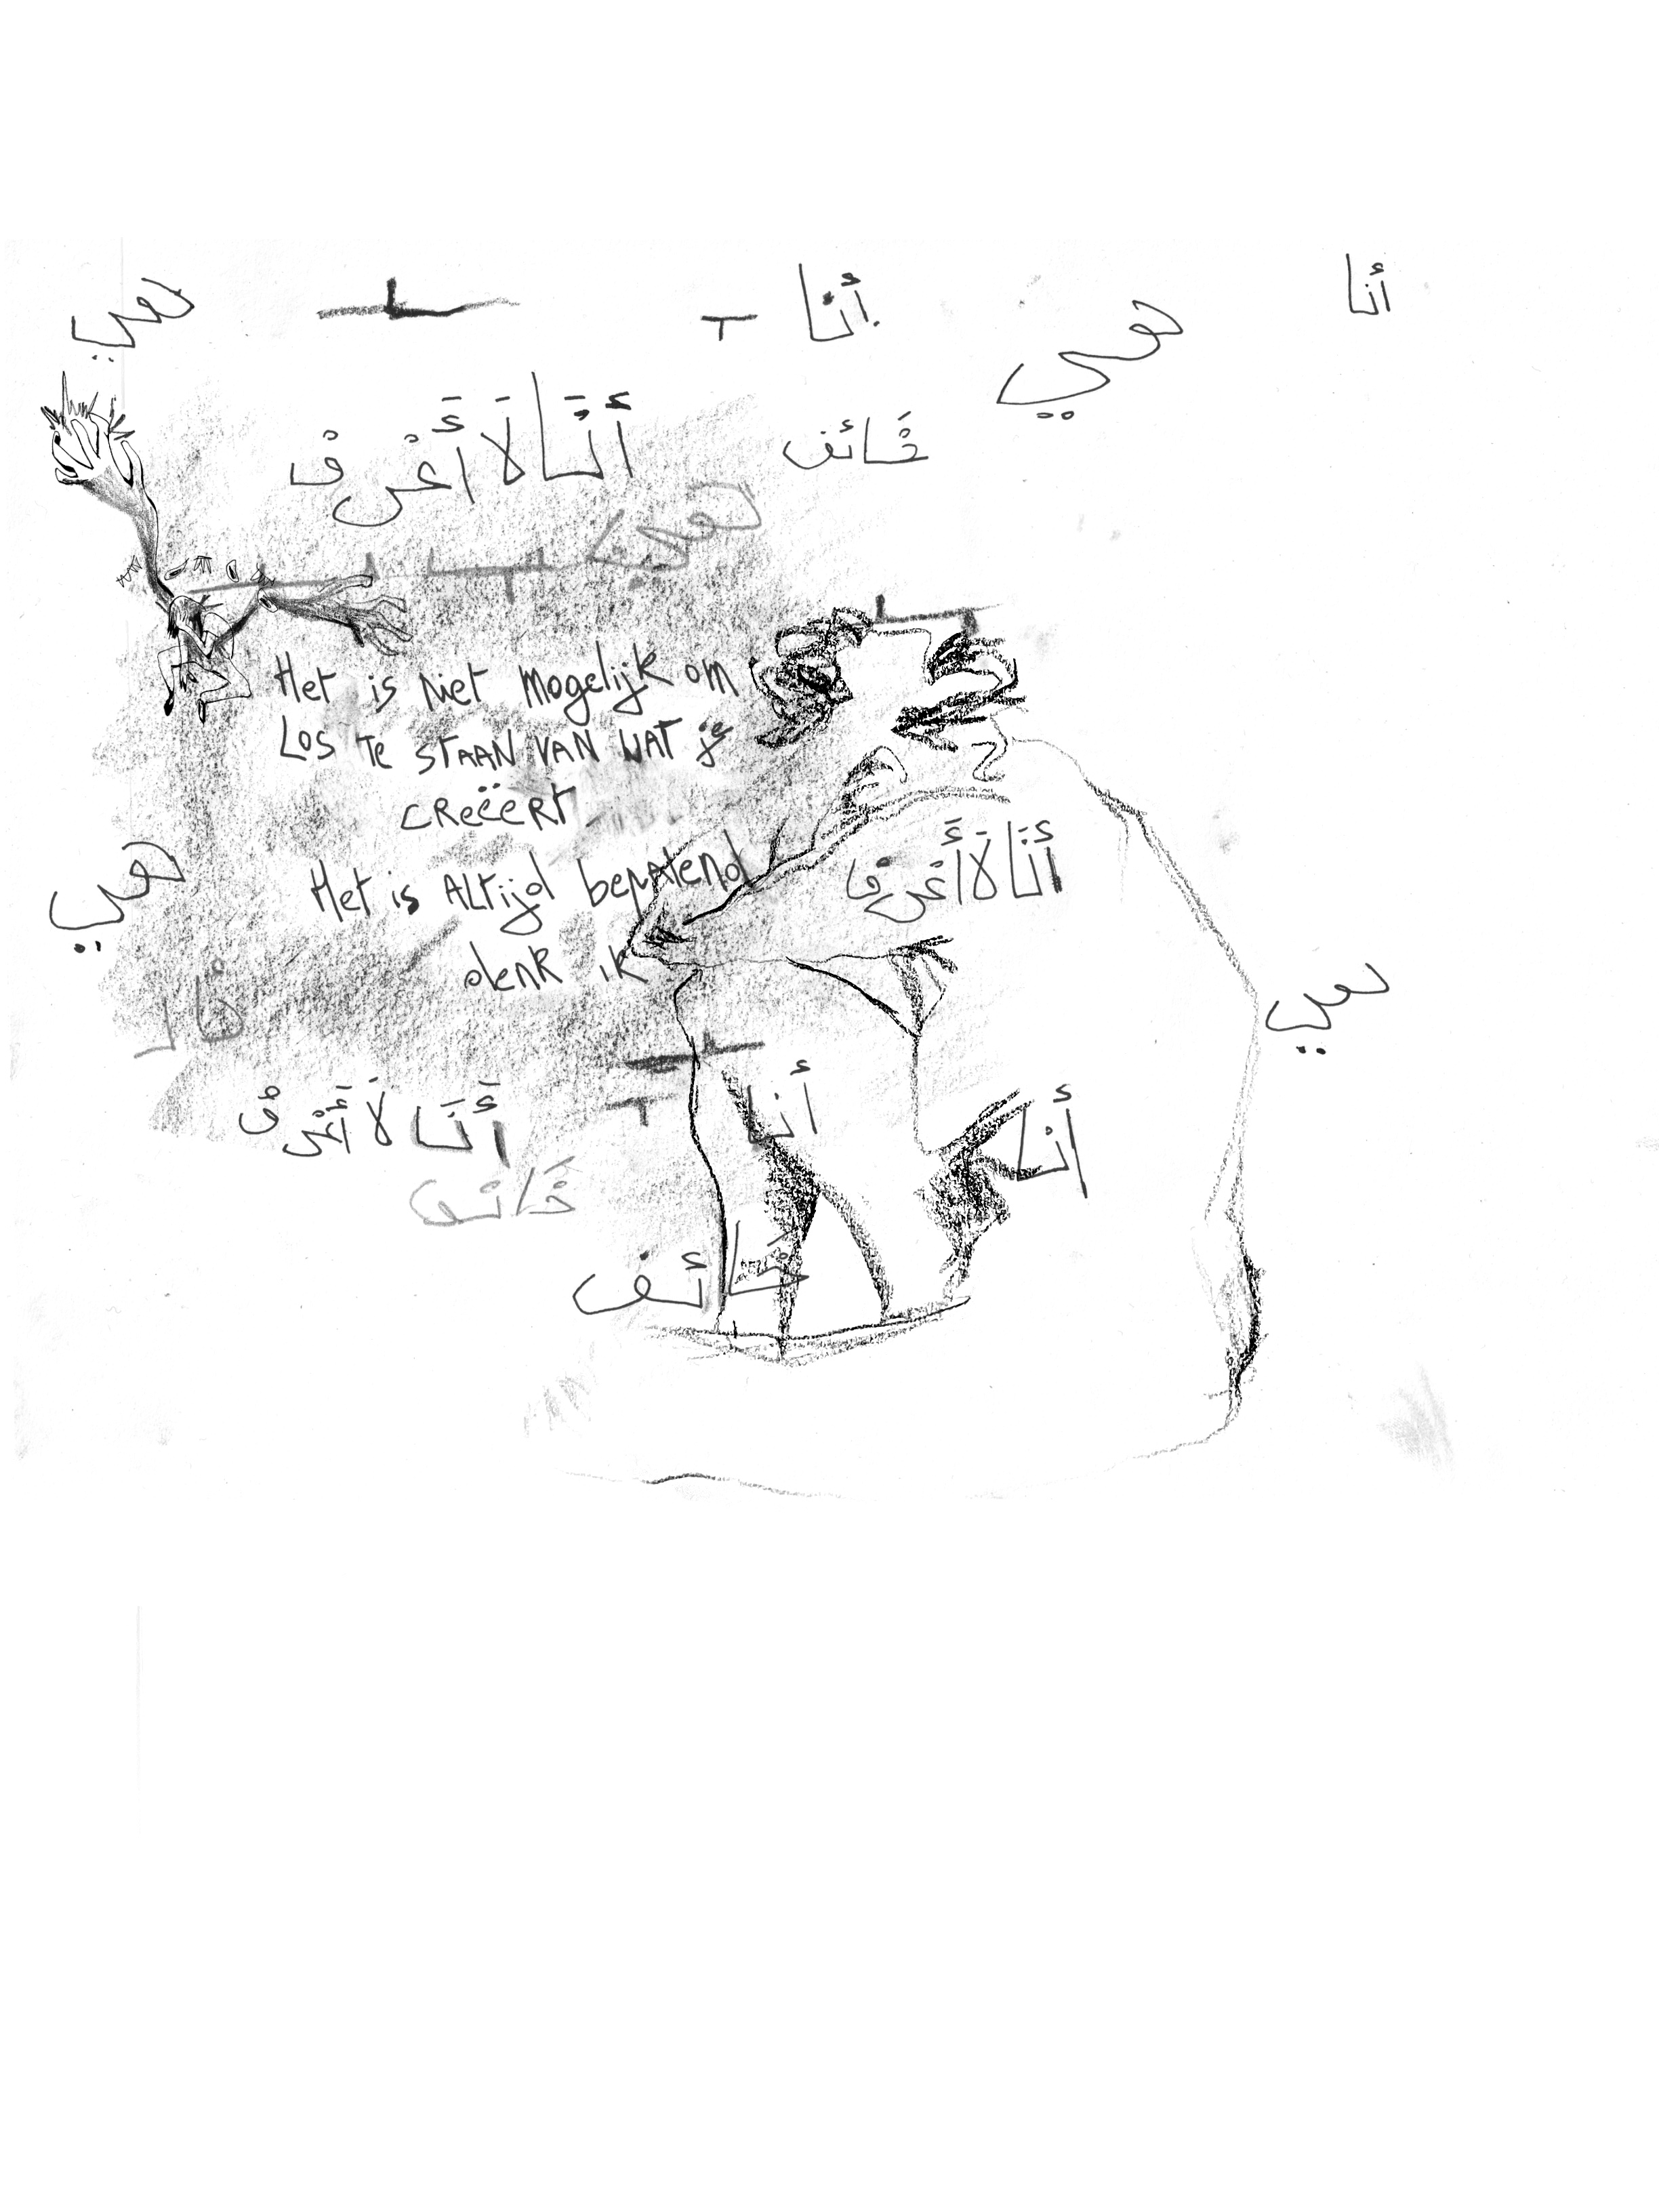 هي
أنا
هي
أنا
أَنَا لَا أَعْرِفْ
خَائف
هي
Het is Niet Mogelijk om
Los Te STAAN VAN WAT je
CReëeRt
Het is ALtijd bepalend
denk ik
أَنَا لَا أَعْرِفْ
هي
هي
نار
أَنَا لَا أَعْرِفْ
أنا
أنا
خَائف
خَائف